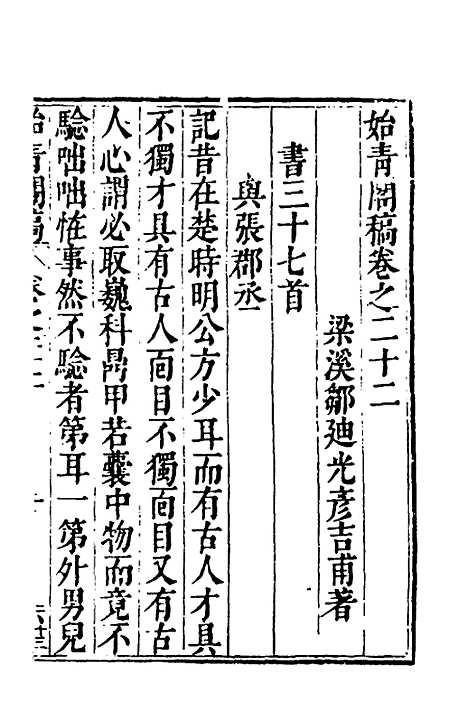 始青閣稿卷之二十二
梁溪鄒迪光彥吉甫著
書三十七首
與張郡丞
記昔在楚時明公方少耳而有古人才具
不獨才具有古人面目不獨面目又有古
人心謂必取巍科鼎甲若囊中物而竟不
驗咄咄恠事然不驗者第耳一第外男兒
始青閣稿 卷之二十二 一